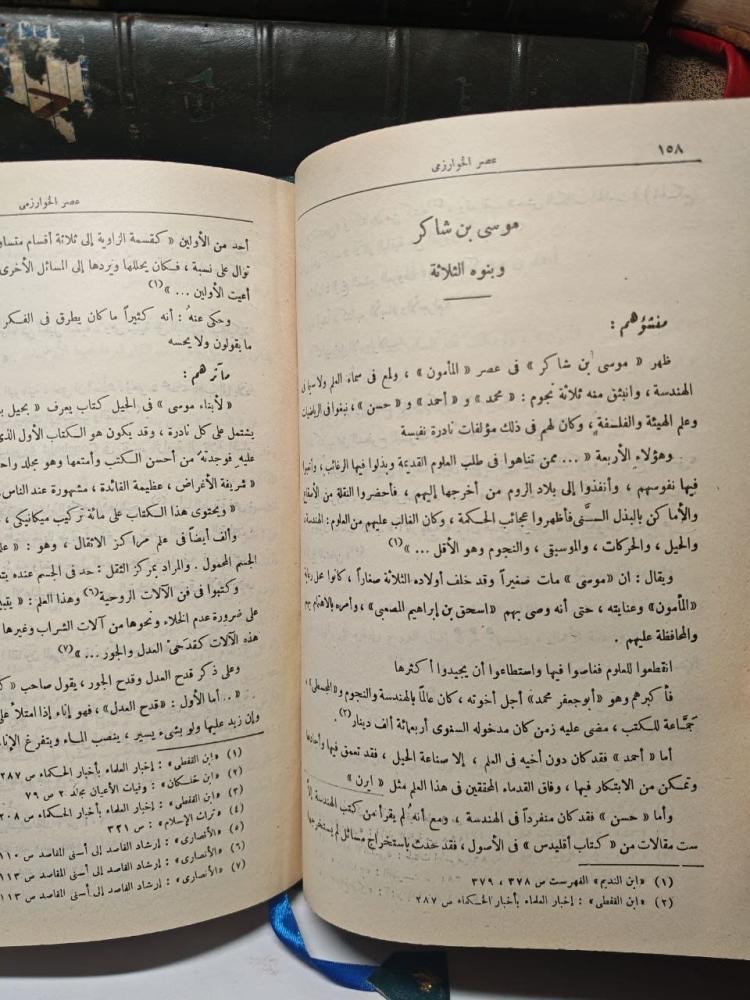 ١٥٨
عصر الخوارزمى
موسى بن شاكر
وبنوه الثلاثة
منشؤهم :
ظهر « موسى بن شاكر » فى عصر « المأمون » ، ولمع فى سماء العلم ولا سيما فى
الهندسة ، وانبثق منه ثلاثة نجوم : « محمد » و « أحمد » و « حسن » ، نبغوا فى الرياضيات
وعلم الهيئة والفلسفة ، وكان لهم فى ذلك مؤلفات نادرة نفيسة
وهؤلاء الأربعة « ... ممن تناهوا فى طلب العلوم القديمة وبذلوا فيها الرغائب ، وأتعبوا
فيها نفوسهم ، وأنفذوا إلى بلاد الروم من أخرجها إليهم ، فأحضروا النقلة من الأصقاع
والأماكن بالبذل السنى فأظهروا عجائب الحكمة ، وكان الغالب عليهم من العلوم : الهندسة ،
والحيل ، والحركات ، والموسيقى ، والنجوم وهو الأقل ... » (١)
ويقال : ان « موسى » مات صغيراً وقد خلف أولاده الثلاثة صغاراً ، كانوا على رعاية
« المأمون » وعنايته ، حتى أنه وصى بهم « اسحق بن إبراهيم المصعبى » ، وأمره بالاهتمام بهم
والمحافظة عليهم .
انقطعوا للعلوم فغاصوا فيها واستطاعوا أن يجيدوا أكثرها
فأكبرهم وهو « أبو جعفر محمد » أجل أخوته ، كان عالماً بالهندسة والنجوم و « المجسطى » ،
جمّاعة للكتب ، مضى عليه زمن كان مدخوله السنوى أربعمائة ألف دينار (٢) .
أما « أحمد » فقد كان دون أخيه فى العلم ، إلا صناعة الحيل ، فقد تعمق فيها وأجادها
وتمكن من الابتكار فيها ، وفاق القدماء المحققين فى هذا العلم مثل « ايرن »
وأما « حسن » فقد كان منفرداً فى الهندسة ، ومع أنه لم يقرأ من كتب الهندسة إلا
ست مقالات من « كتاب أقليدس » فى الأصول ، فقد حدث باستخراج مسائل لم يستخرجها
(١) « ابن النديم » الفهرست ص ٣٧٨ ، ٣٧٩
(٢) « ابن القفطى » : إخبار العلماء بأخبار الحكماء ص ٢٨٧
عصر الخوارزمى
أحد من الأولين « كقسمة الزاوية إلى ثلاثة أقسام
توال على نسبة ، فكان يحللها ويردها إلى المسائل الأخرى
أعيت الأولين ... » (١)
وحكى عنه : أنه كثيراً ما كان يطرق فى الفكر
ما يقولون ولا يحسه
مآثرهم :
« لأبناء موسى » فى الحيل كتاب يعرف « بحيل
يشتمل على كل نادرة ، وقد يكون هو الكتاب الأول الذى
عليه فوجدته من أحسن الكتب وأمتعها وهو مجلد واحد
« شريفة الأغراض ، عظيمة الفائدة ، مشهورة عند الناس
« ويحتوى هذا الكتاب على مائة تركيب ميكانيكى ،
وألف أيضاً فى علم مراكز الاثقال ، وهو :
الجسم المحمول . والمراد بمركز الثقل : حد فى الجسم عنده
وكتبوا فى فن الآلات الروحية (٦) وهذا العلم :
على ضرورة عدم الخلاء ونحوها من آلات الشراب وغيرها
هذه الآلات كقدحى العدل والجور ... » (٧)
وعلى ذكر قدح العدل وقدح الجور ، يقول صاحب
« .. أما الأول : « قدح العدل » ، فهو إناء إذا امتلأ
وإن زيد عليها ولو بشىء يسير ، ينصب الماء ويتفرغ
(١) « ابن القفطى » : إخبار العلماء بأخبار الحكماء ص ٢٨٧
(٢) « ابن خلكان » : وفيات الأعيان مجلد ٢ ص ٧٩
(٣) « ابن القفطى » : إخبار العلماء بأخبار الحكماء ص ٢٠٨
(٤) « تراث الإسلام » : ص ٣٢١
(٥) « الأنصارى » : إرشاد القاصد إلى أسنى المقاصد ص ١١٠
(٦) « الأنصارى » : إرشاد القاصد إلى أسنى المقاصد ص ١١٣
(٧) « الأنصارى » : إرشاد القاصد إلى أسنى المقاصد ص ١١٣